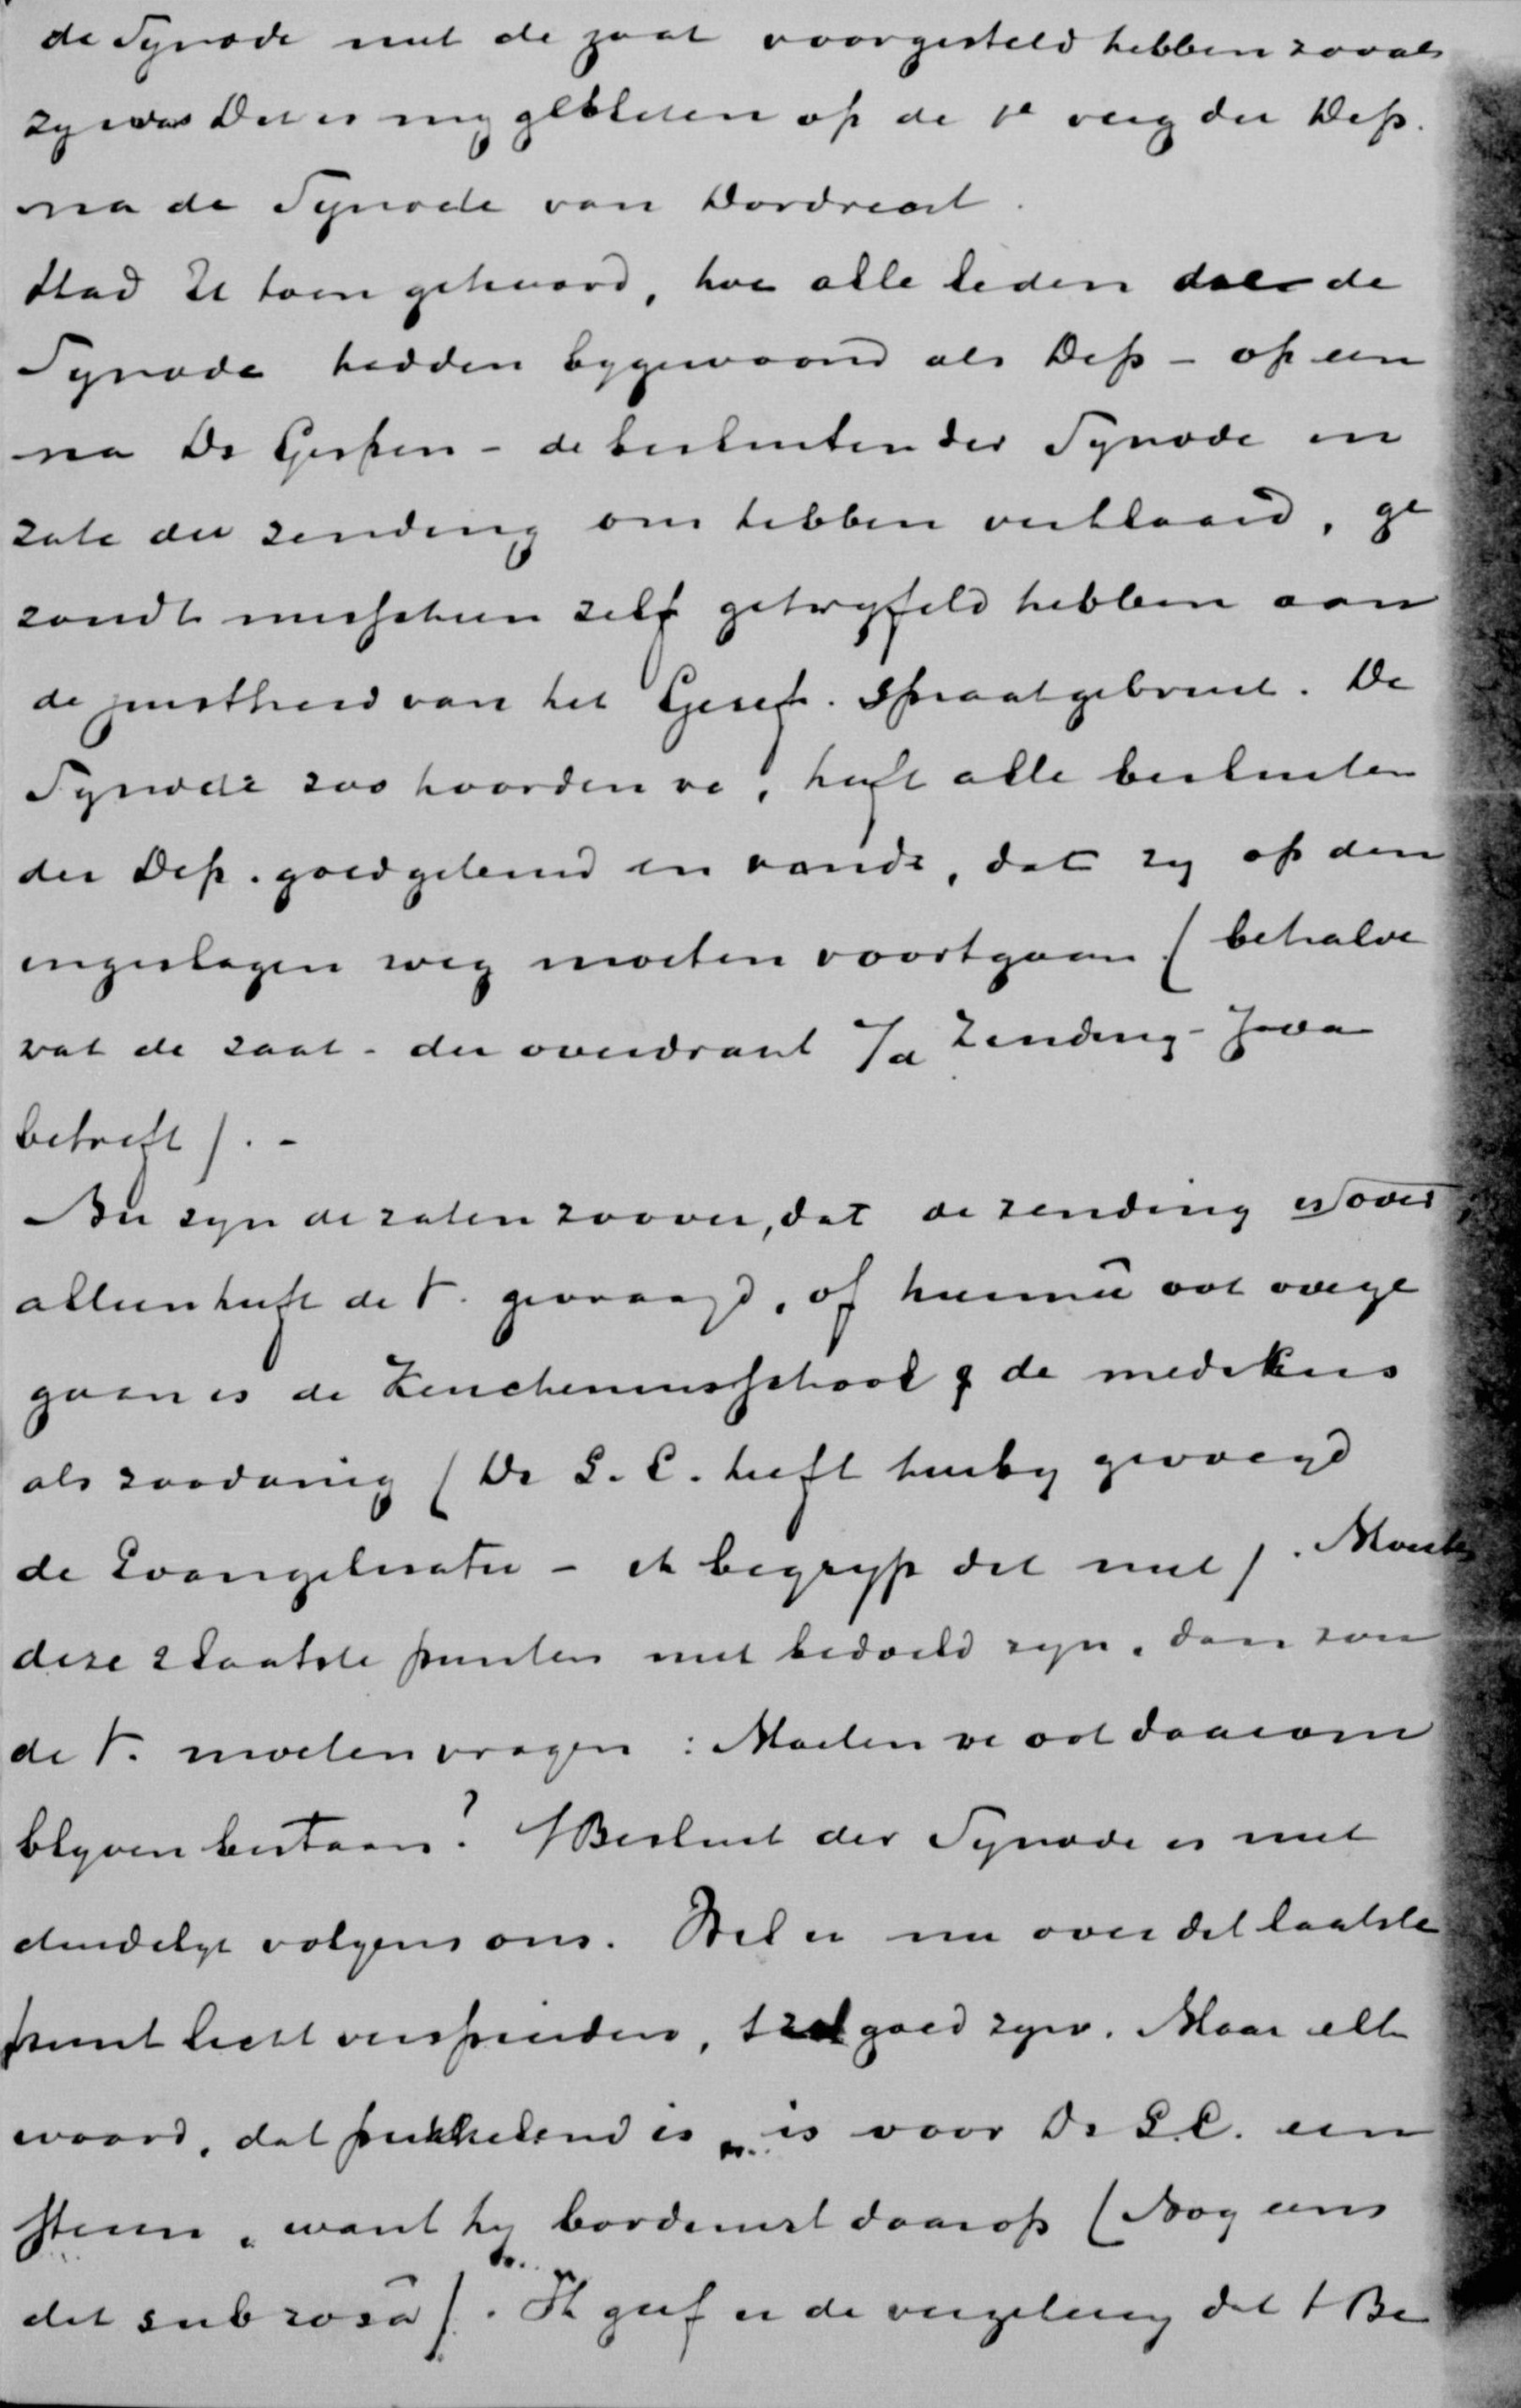 de Synode niet de zaak voorgesteld hebben zooals
zy was Dat is my gebleken op de 1e verg der Dep.
na de Synode van Dordrecht.
Had U toen gehoord, hoe alle leden die de
Synode hadden bygewoond als Dep - op een
na Ds Gispen - de besluiten der Synode in
zake der zending ons hebben verklaard, ge
zoudt misschien zelf getwyfeld hebben aan
de juistheid van het Geref. spraakgebruik. De
Synode zoo hoorden we, heeft alle besluiten
der Dep. goedgekeurd en vond, dat zy op den
ingeslagen weg moeten voortgaan (behalve
wat de zaak - der overdracht /d Zending - Java
betreft). -
Nu zyn de zaken zoover, dat de zending is over,
alleen heeft de V. gevraagd, of hiermee ook overge
gaan is de Keucheniusschool & de medikus
als zoodanig (Ds L. C. heeft hierby gevoegd
de Evangelisatie - ik begryp dat niet). Mocht
deze 2 laatste punten niet bedoeld zyn, dan zou
de V. moeten vragen: Moeten we ook daarom
blyven bestaan? 't Besluit der Synode is niet
duidelyk volgens ons. Wil er nu over dit laatste
punt licht verspreiden, 't zal goed zyn. Maar elk
woord, dat prikkelend is, is voor Ds L.C. een
steun, want hy borduurt daarop (Nog eens
dit sub rosa). Ik geef er de vergelyking dat 't Be